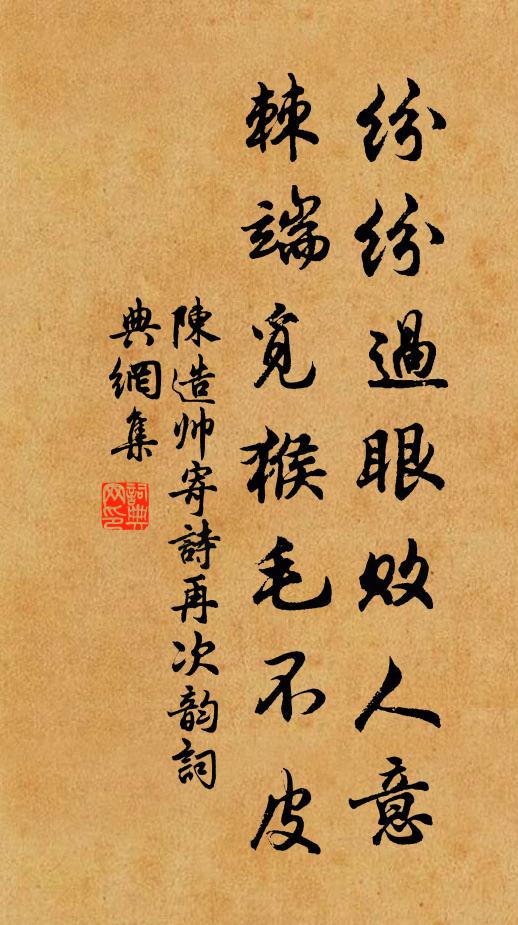 纷纷過眼敗人意
棘端覓猴毛不皮
陳造帅寄詩再次韵詞
典網集
詞典
网印